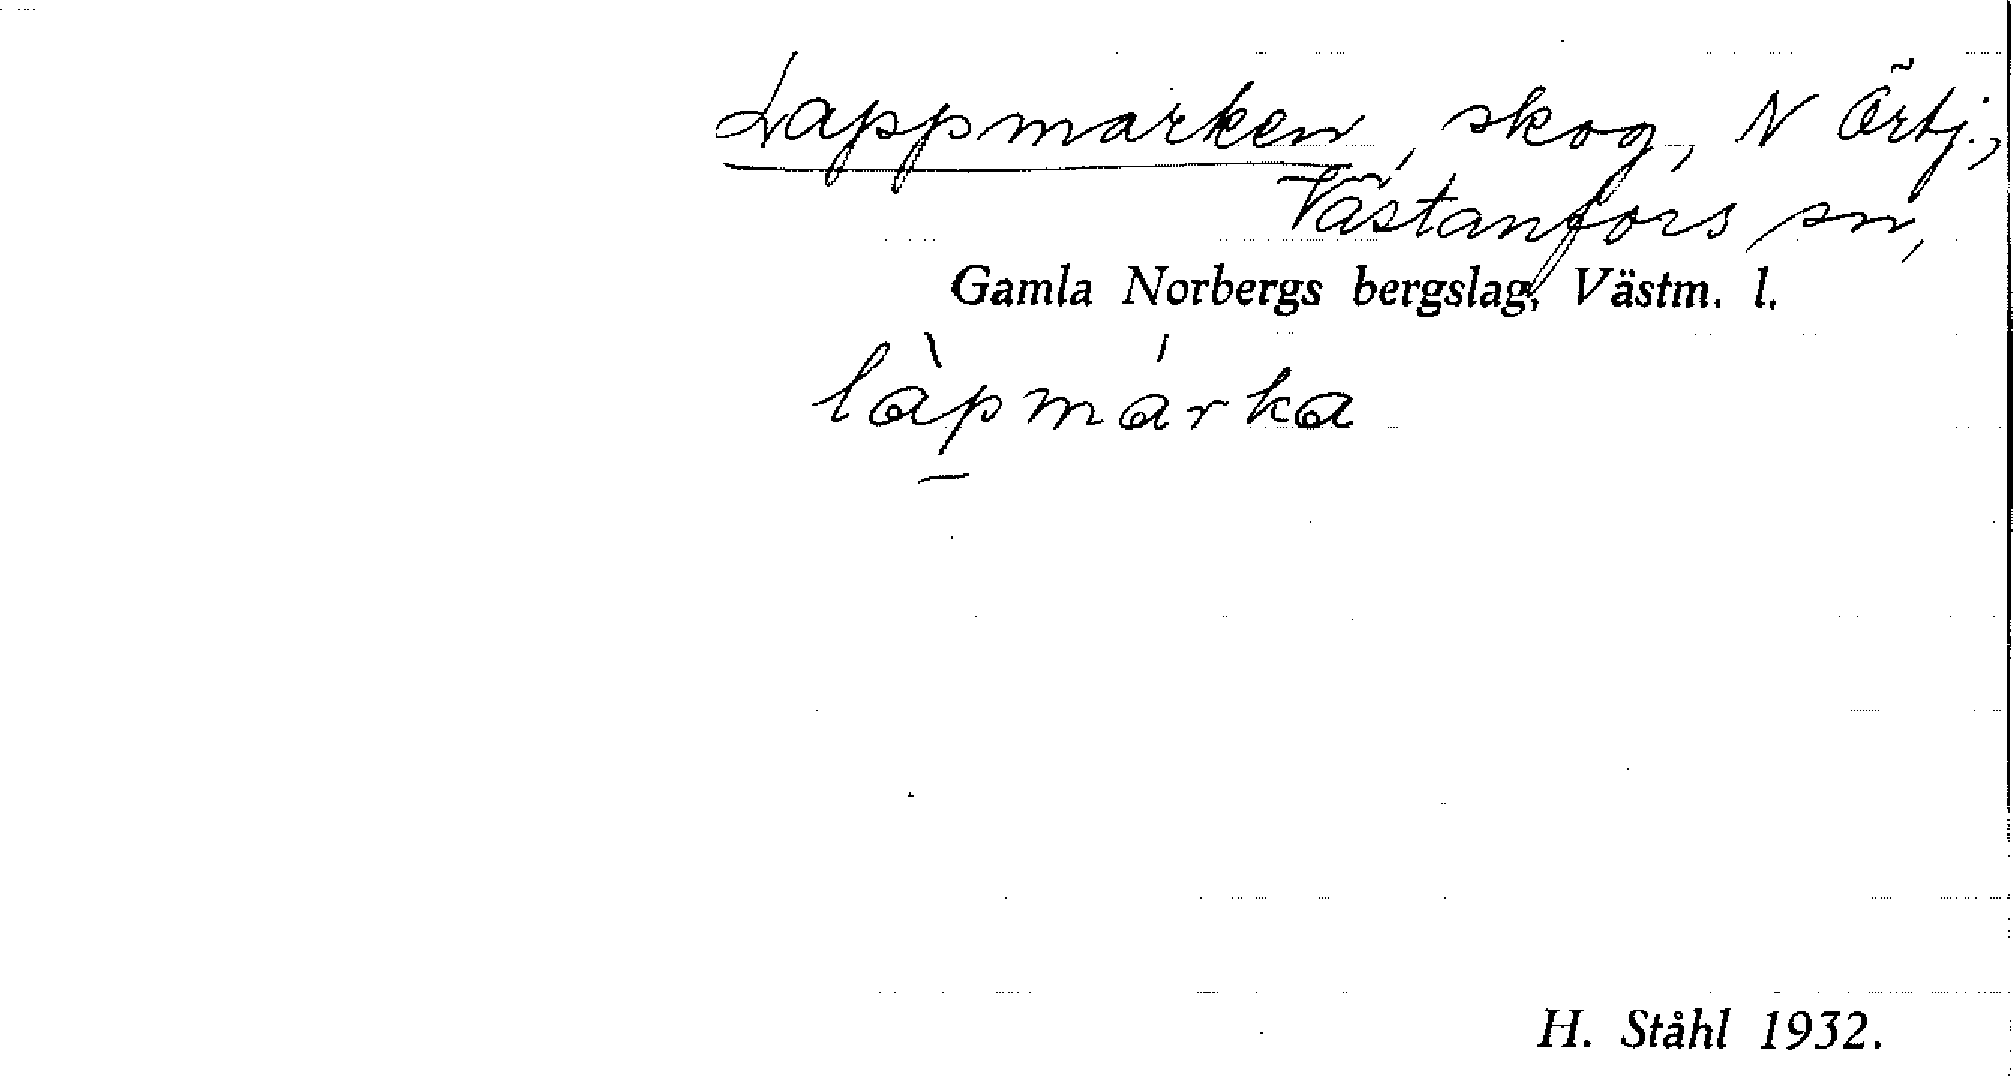 Lappmarken, skog, N Örbj.,
Västanfors sn,
Gamla Norbergs bergslag, Västm. l.
làpmárka
H. Ståhl 1932.